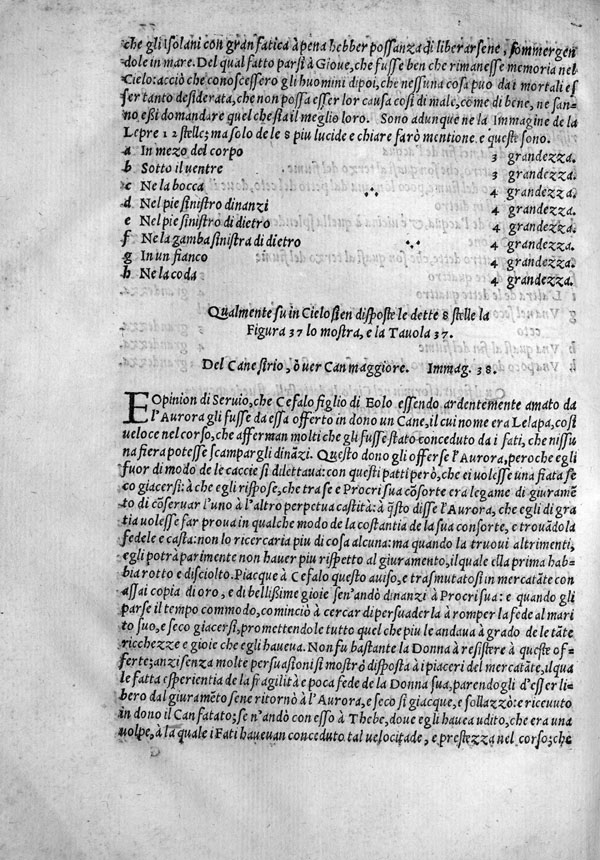 che gli Isolani con gran fatica à pena hebber possanza di liberarsene, sommergen
dole in mare. Del qual fatto parsi à Gioue, che fusse ben che rimanesse memoria nel
Cielo: acciò che conoscessero gli huomini dipoi, che nessuna cosa puo da i mortali es
ser tanto desiderata, che non possa esser lor causa cosi di male, come di bene, ne san-
no eßi domandare quel che sia il meglio loro. Sono adunque ne la Immagine de la
Lepre 12 stelle; ma solo de le 8 piu lucide e chiare farò mentione. e queste sono.
a In mezo del corpo 3 grandezza.
b Sotto il uentre 3 grandezza.
c Ne la bocca 4 grandezza.
d Nel pie sinistro dinanzi 4 grandezza.
e Nel pie sinistro di dietro 4 grandezza.
f Ne la gamba sinistra di dietro 4 grandezza.
g In un fianco 4 grandezza.
h Ne la coda 4 grandezza.
Qualmente su in Cielo sien disposte le dette 8 stelle la
Figura 37 lo mostra, e la Tauola 37.
Del Cane sirio, ò uer Can maggiore. Immag. 38.
E Opinion di Seruio, che Cefalo figlio di Eolo essendo ardentemente amato da
l'Aurora gli fusse da essa offerto in dono un Cane, il cui nome era Lelapa, cosi
ueloce nel corso, che afferman molti che gli fusse stato conceduto da i fati, che nissu
na fiera potesse scampargli dinãzi. Questo dono gli offerse l'Aurora, peroche egli
fuor di modo de le caccie si dilettaua: con questi patti però, che ei uolesse una fiata se
co giacersi: à che egli rispose, che tra se e Procri sua cõsorte era legame di giuramẽ
to di cõseruar l'uno à l'altro perpetua castità: à q̃sto disse l'Aurora, che egli di gra
tia uolesse far proua in qualche modo de la costantia de la sua consorte, e trouãdola
fedele e casta: non lo ricercaria piu di cosa alcuna: ma quando la truoui altrimenti,
egli potrà parimente non hauer piu rispetto al giuramento, il quale ella prima hab-
bia rotto e disciolto. Piacque à Cefalo questo auiso, e trasmutatosi in mercatãte con
assai copia di oro, e di bellißime gioie sen'andò dinanzi à Procri sua: e quando gli
parse il tempo commodo, cominciò a cercar di persuaderla à romper la fede al mari
to suo, e seco giacersi, promettendole tutto quel che piu le andaua à grado de le tãte
ricchezze e gioie che egli haueua. Non fu bastante la Donna à resistere à queste of-
ferte; anzi senza molte persuasioni si mostrò disposta à i piaceri del mercatãte, il qua
le fatta esperientia de la fragilità e poca fede de la Donna sua, parendogli d'esser li-
bero dal giuramẽto sene ritornò à l'Aurora, e seco si giacque, e sollazzò: e riceuuto
in dono il Can fatato; se n'andò con esso à Thebe, doue egli hauea udito, che era una
uolpe, à la quale i Fati haueuan conceduto tal uelocitade, e prestezza nel corso; che